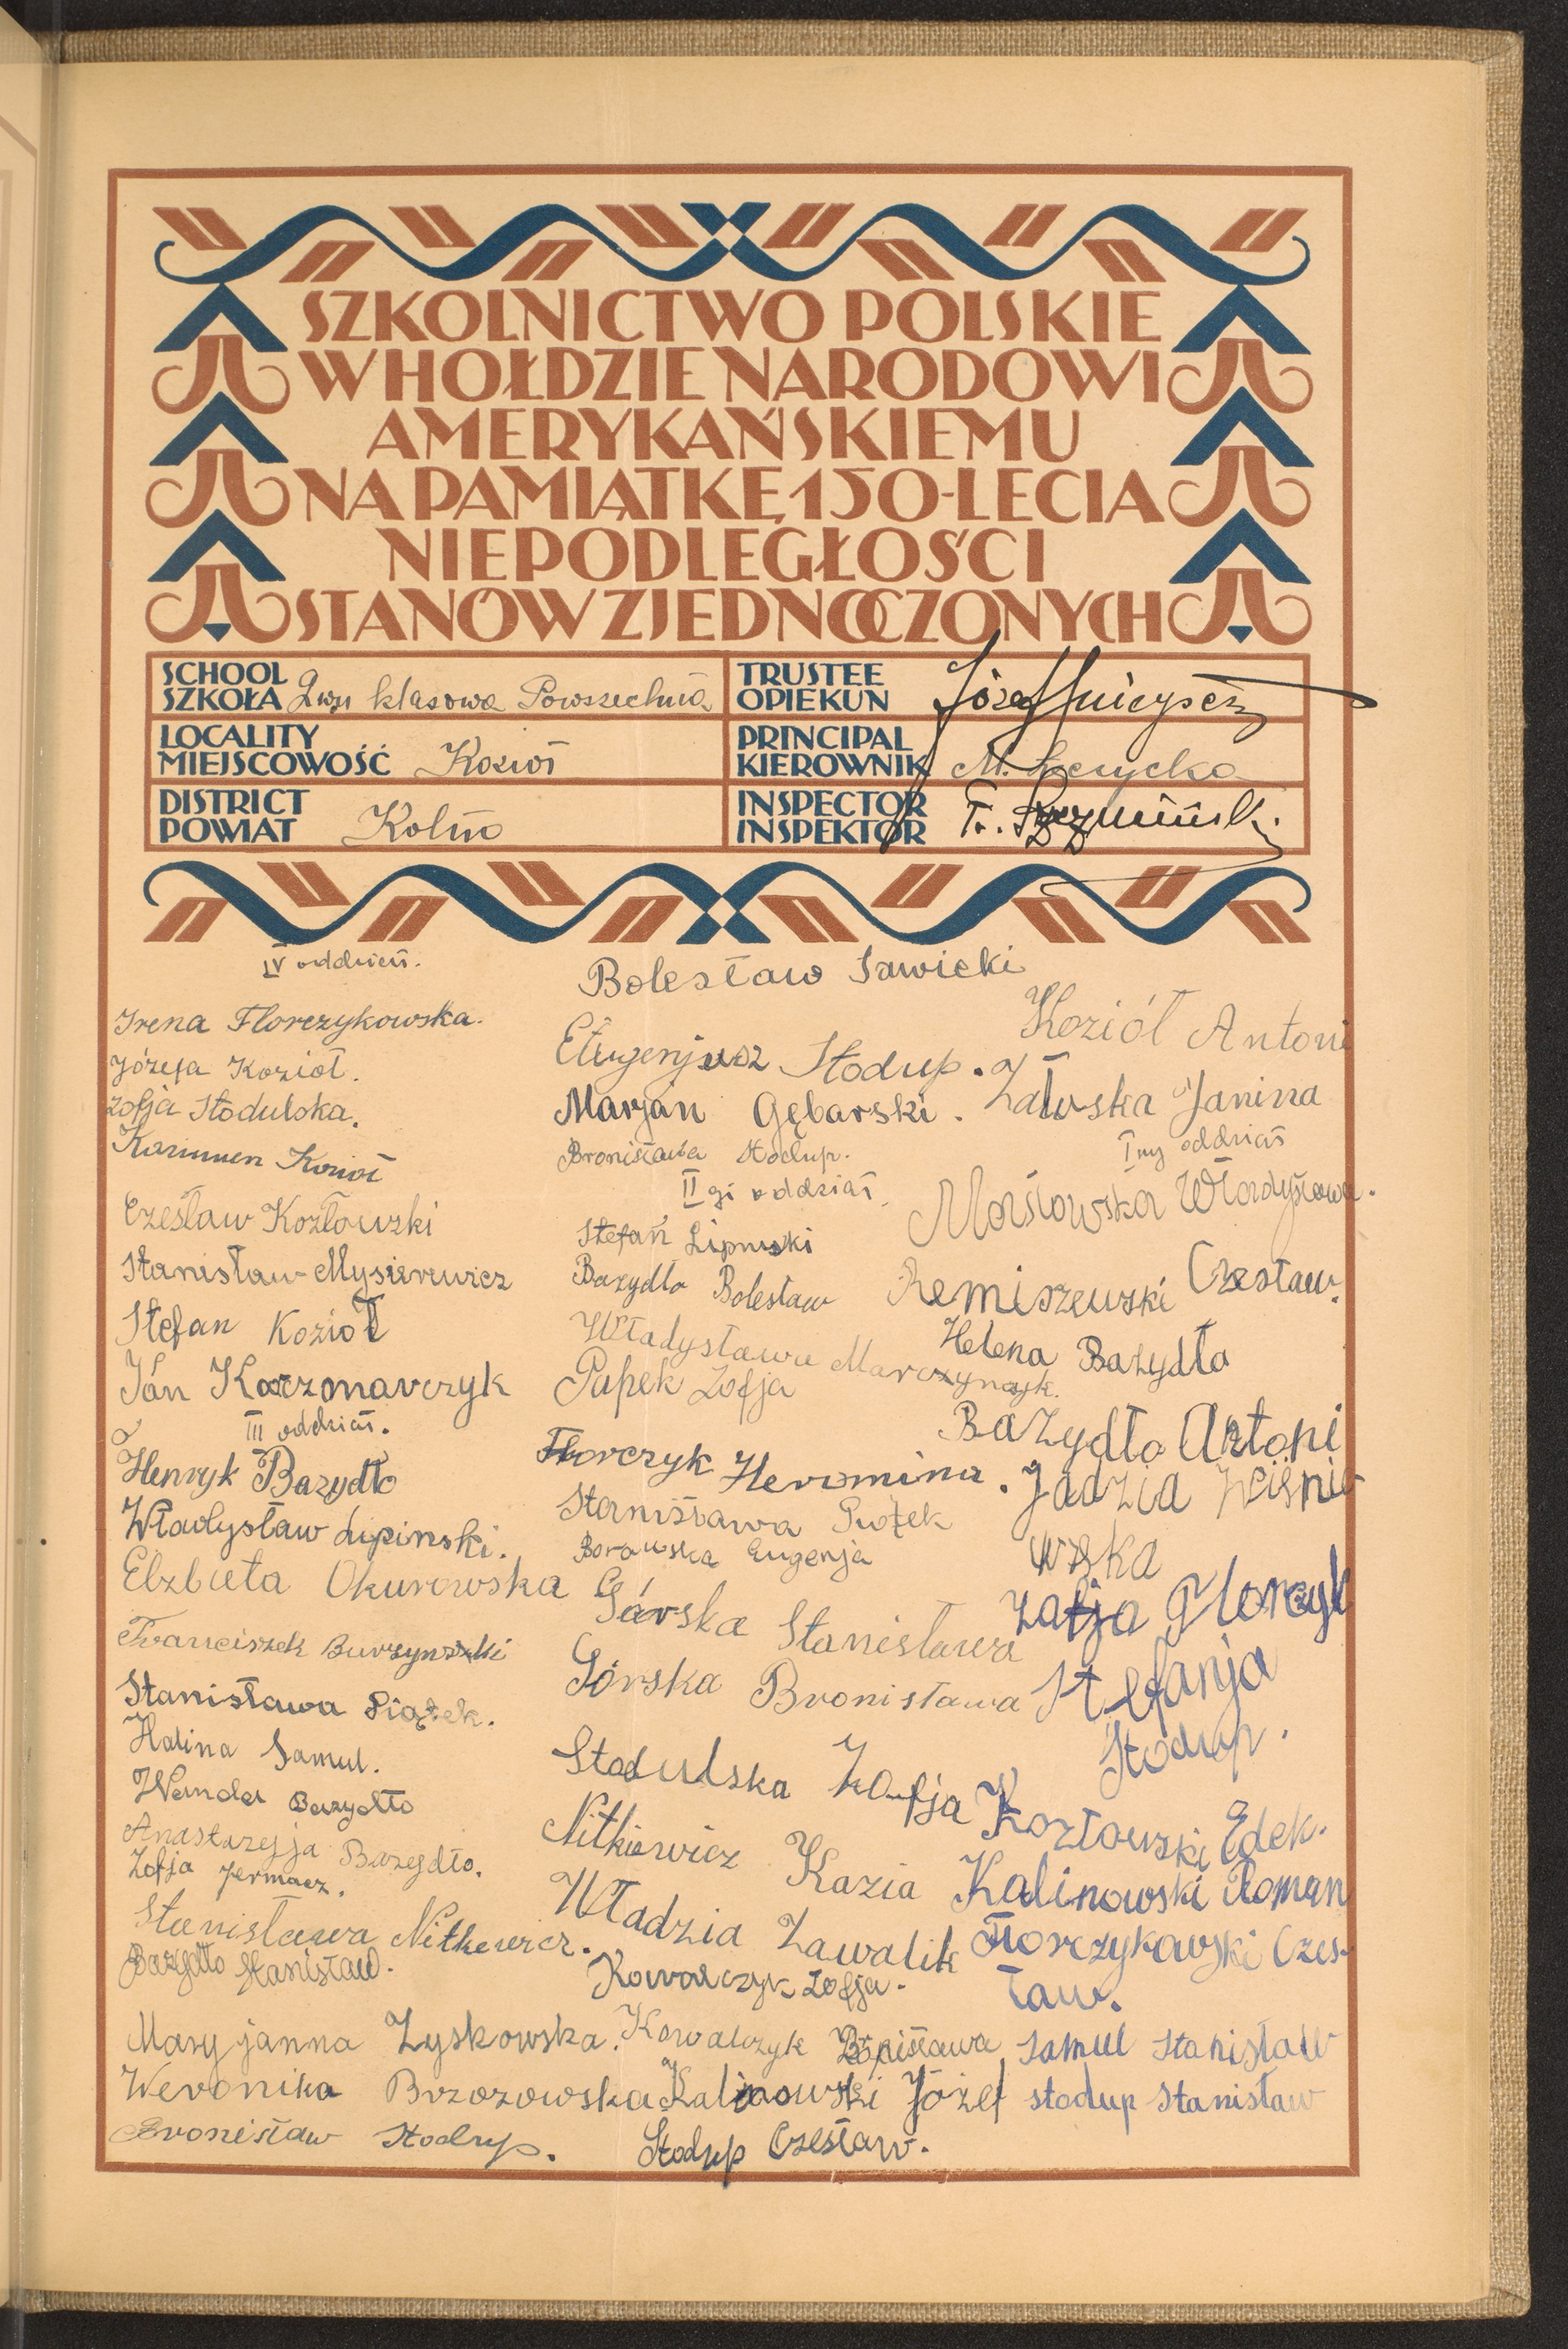 SZKOLNICTWO POLSKIE
W HOŁDZIE NARODOWI
AMERYKAŃSKIEMU
NA PAMIĄTKĘ 150-LECIA
NIEPODLEGŁOŚCI
STANÓW ZJEDNOCZONYCH
SCHOOL
SZKOŁA 2wu klasowa Powszechna
LOCALITY
MIEJSCOWOŚĆ Kozioł
DISTRICT
POWIAT Kolno
TRUSTEE
OPIEKUN Józef
PRINCIPAL
KIEROWNIK M.
INSPECTOR
INSPEKTOR
IV oddział.
Irena Florczykowska.
Józefa Kozioł.
Zofja Stodulska.
Kozioł
Czesław Kozłowski
Stanisław
Stefan Kozioł
Jan Kaczmarczyk
III oddział.
Henryk Bazydło
Władysław Lipinski.
Elzbieta Okurowska
Franciszek Burzynski
Stanisława Piątek.
Halina Samul.
Wanda Bazydło
Anastazyja Bazydło.
Zofja Jermacz.
Stanisława Nitkewicz.
Bazydło Stanisław.
Maryjanna Zyskowska.
Weronika Brzozowska
Bronisław Stodup.
Bolesław Sawicki
Eugenjusz Stodup.
Marjan Gębarski.
Bronisława Stodup.
II gi oddział
Stefan Lipinski
Bazydło Bolesław
Władysława Marczynayk.
Papek Zofja
Florczyk Heromina.
Stanisława Piątek
Borawska Eugenja
Górska Stanisława
Górska Bronisława
Stodulska Zofja
Nitkiewicz Kazia
Władzia Zawalik
Kowalczyk Zofja.
Kowalczyk Bronisława
Kalinowski Józef
Stodup Czesław.
Koziół Antoni
Załuska Janina
I wy oddział
Masłowska Władysława.
Remiszewski Czesław.
Helena Bazydła
Bazydło Antoni
Jadzia Wiśnie
wska
Zofja Florczyk
Stefanja
Stodup.
Kozłowski Edek.
Kalinowski Roman
Florczykowski Czes-
ław.
Samul Stanisław
Stodup Stanisław